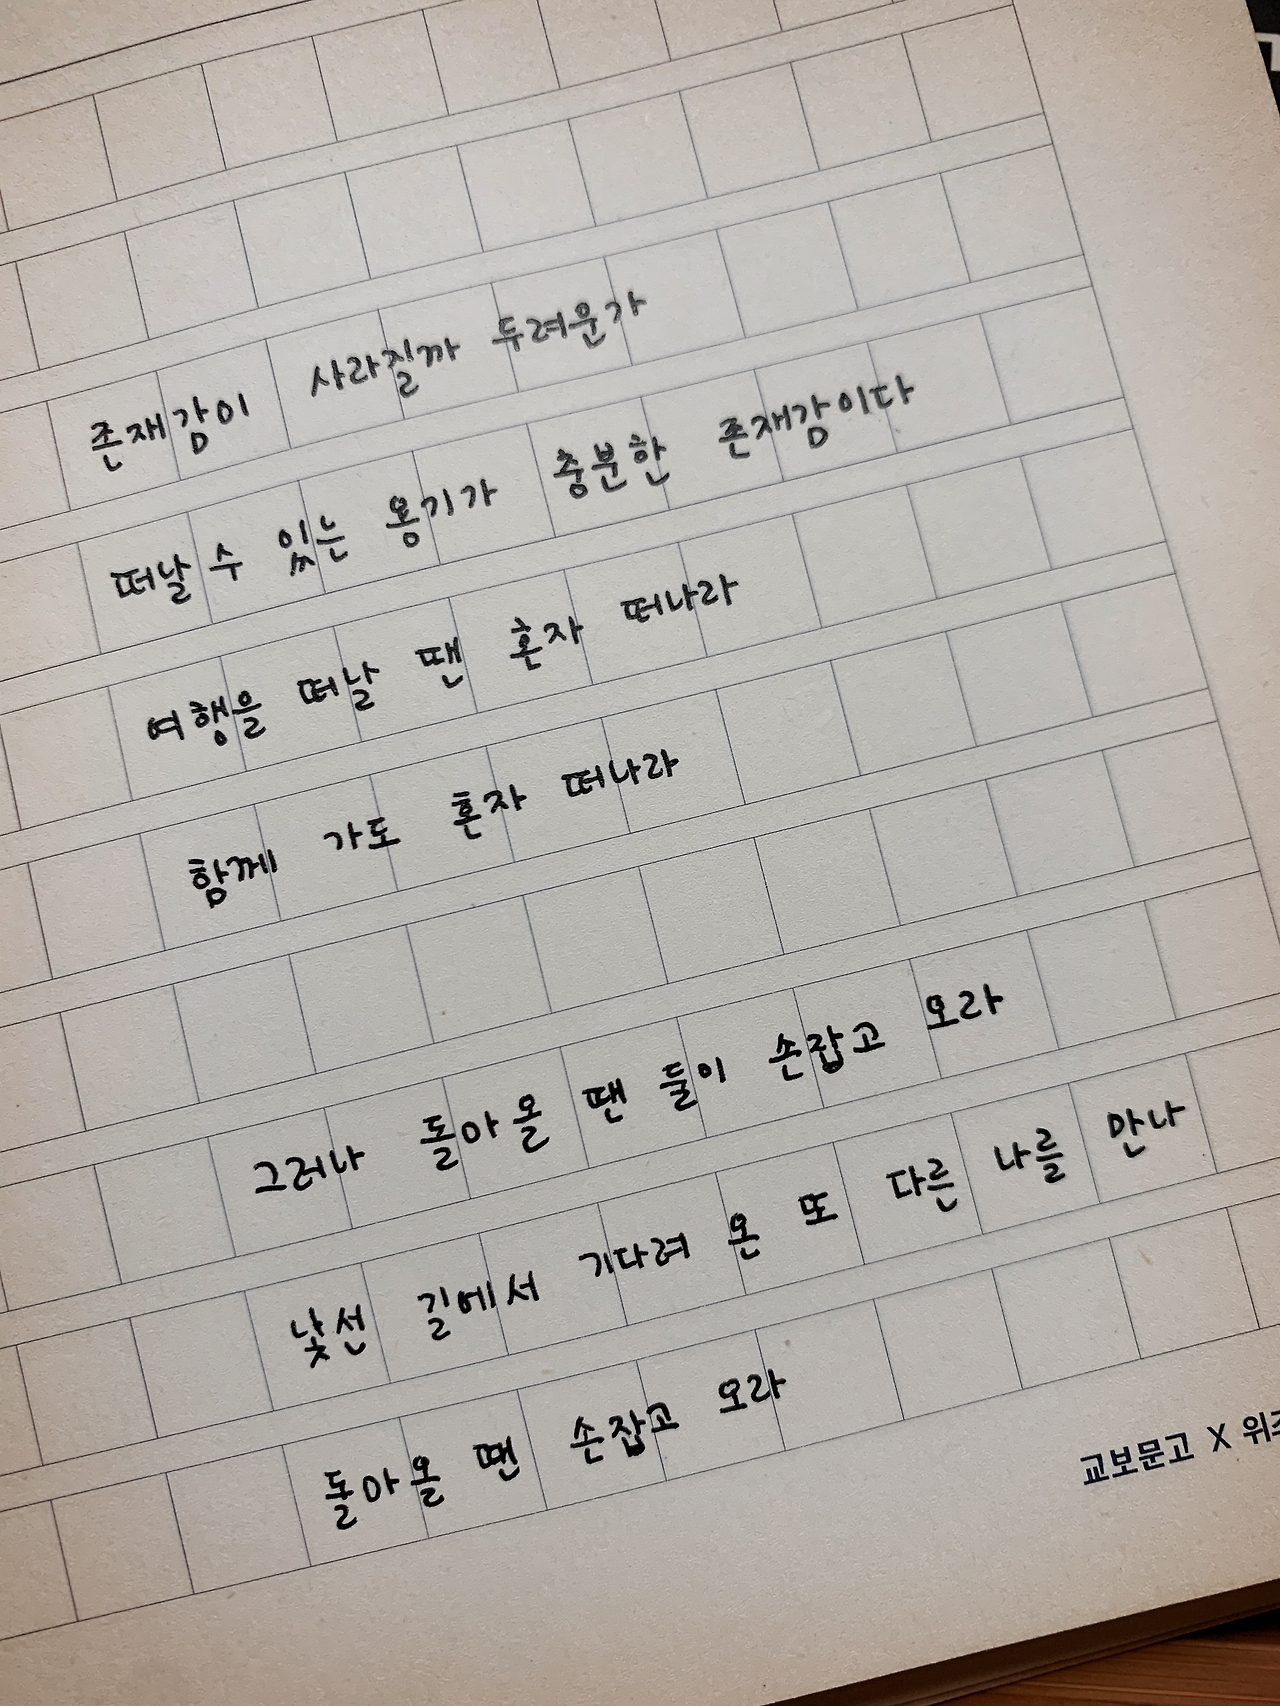 존재감이 사라질까 두려운가
떠날 수 있는 용기가 충분한 존재감이다
여행을 떠날 땐 혼자 떠나라
함께 가도 혼자 떠나라
그러나 돌아올 땐 둘이 손잡고 오라
낯선 길에서 기다려 온 또 다른 나를 만나
돌아올 땐 손잡고 오라
교보문고 X